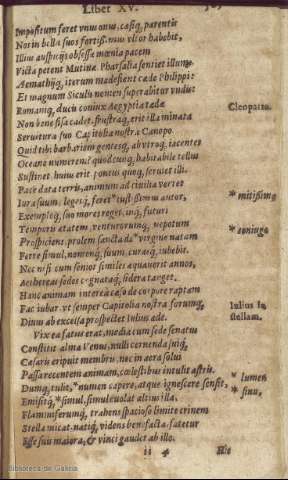 Liber XV.
Impositum feret vnus onus, cæsiq; parentis
Nos in bella suos fortiss. mus vltor habebit,
Illius auspicijs obsessæ mœnia pacem
Victa petent Mutinæ. Pharsalia sentiet illum,
Aemathijq; iterum madefient cæde Philippi:
Et magnum Siculis nomen superabitur vndis:
Romaniq; ducis coniux Aegyptia tædæ
Cleopatra.
Non bene fisa cadet. frustraq; erit illa minata
Seruitura suo Capitolia nostra Canopo.
Quid tibi barbariem gentesq; ab vtroq; iacentes
Oceano numerem? quodcunq; habitabile tellus
Sustinet, huius erit. pontus quoq; seruiet illi.
Pace data terris, animum ad ciuilia vertet
* mitissimq
Iura suum: leges q; feret *iustissimus autor,
Exemploq; suo mores reget. inq; futuri
Temporis ætatem, venturorumq; nepotum
* coniuge
Prospiciens, prolem sancta de *virgine natam
Ferre simul, nomenq; suum, curasq; iubebit.
Nec nisi cum senior similes æquauerit annos,
Aethereas sedes cognataq; sidera tanget.
Hanc animam interea cæso de corpore raptam
Fac iubar. vt semper Capitolia nostra forumq;
Iulius in
stellam.
Diuus ab excelsa prospectet Iulius æde.
Vix ea fatus erat, media cum sede senatus
Constitit alma Venus, nulli cernenda suiq;
Cæsaris eripuit membris, nec in aera solui
Passa recentem animam, cœlestibus intulit astris.
* lumen
Dumq; tulit, *numen capere, atque ignescere sensit,
* sinu,
Emisitq; *simul. simul euolat altius illa.
Flammiferumq; trahens spacioso limite crinem
Stella micat. natiq; videns benefacta, fatetur
Esse suis maiora, & vinci gaudet ab illo.
ii 4 Hic
Biblioteca de Galicia